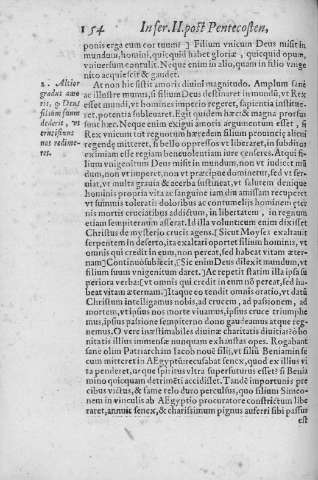 154 Infer. II. post Pentecosten,
ponis erga eum cor tuum? ] Filium vnicum Deus misit in
mundũ, homini, quicquid habet gloriæ, quicquid opum,
vniuersum contulit. Neque enim in alio, quam in filio vnige
nito acquiescit & gaudet.
2. Altior
gradus amo
ris, q; Deus
filium suum
dederit, vt
eruciatum
nos redime-
ret.
At non hic sistit amoris diuini magnitudo. Amplum sanè
ac illustre munus, si filium Deus destinaret in mundũ, vt Rex
esset mundi, vt homines imperio regeret, sapientia institue-
ret, potentia subleuaret. Egit quidem hæc & magna prorsus
sunt hæc. Neque enim exigui amoris argumentum esset, si
Rex vnicum tot regnorum hæredem filium prouinciæ alicui
regendę mitteret, si bello oppressos vt liberaret, in subditos
eximiam esse regiam beneuolentiam iure censeres. Atqui fi-
lium vnigenitum Deus misit in mundum, non vt iudicet mũ
dum, non vt imperet, non vt præcipue dominetur, sed vt ser-
uiat, vt multa grauia & acerba sustineat, vt salutem denique
hominis propria vita ac sanguine iam diu amissam recuperet
vt summis toleratis doloribus ac contumelijs hominem æter
nis mortis cruciatibus addictum, in libertatem, in regnum
etiam sempiternum asserat. Id illa voluit cum enim dixisset
Christus de mysterio crucis agens, [ Sicut Moyses exaltauit
serpentem in deserto, ita exaltari oportet filium hominis, vt
omnis qui credit in eum, non pereat, sed habeat vitam æter-
nam] Continuò subiecit. [ Sic enim Deus dilexit mundum, vt
filium suum vnigenitum daret. ] Ac repetit statim illa ipsa su
periora verba: [ vt omnis qui credit in eum nõ pereat, sed ha-
beat vitam æternam. ] Itaque eo tendit omnis oratio, vt datũ
Christum intelligamus nobis, ad crucem, ad passionem, ad
mortem, vt ipsus nos morte viuamus, ipsius cruce triumphe
mus, ipsius passione sempiterno dono gaudeamus atque reg-
nemus. O vere inæstimabiles diuinæ charitatis diuitias? ô bo
nitatis illius immensæ nunquam exhaustas opes. Rogabant
sane olim Patriarcham Iacob nouẽ filij, vt filiũ Beniamin se
cum mitteret in AEgyptũ: recusabat senex, quod ex illius vi
ta penderet, vt quisque spiritus vltra superfuturus esset? si Benia
mino quidquam detrimẽti accidisset. Tandẽ importunis pre
cibus victus, & fame relo duro perculsus, quo filium Simeo-
nem in vinculis ab AEgyptio procuratore constrictum libe
raret, annuit senex, & charissimum pignus auferri sibi passus
est